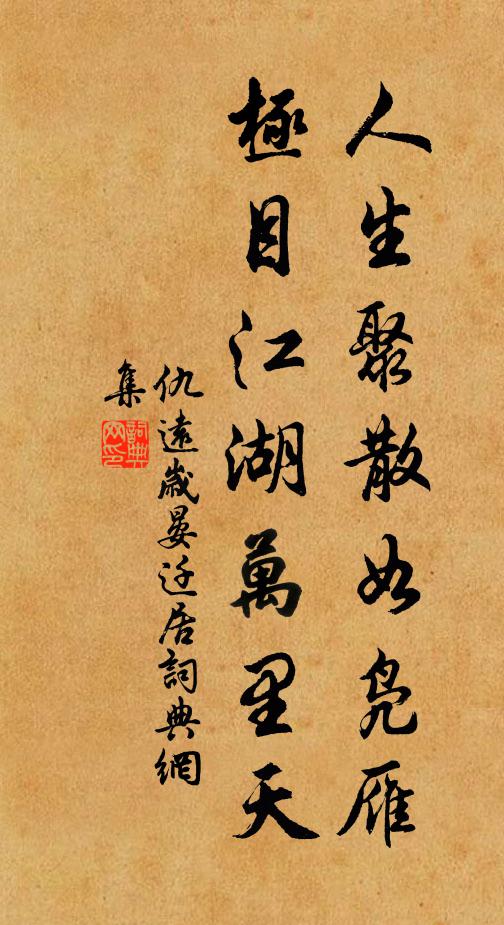 人生聚散如鳧雁
極目江湖萬里天
仇遠歲晏迁居詞典網
集
詞典
網印